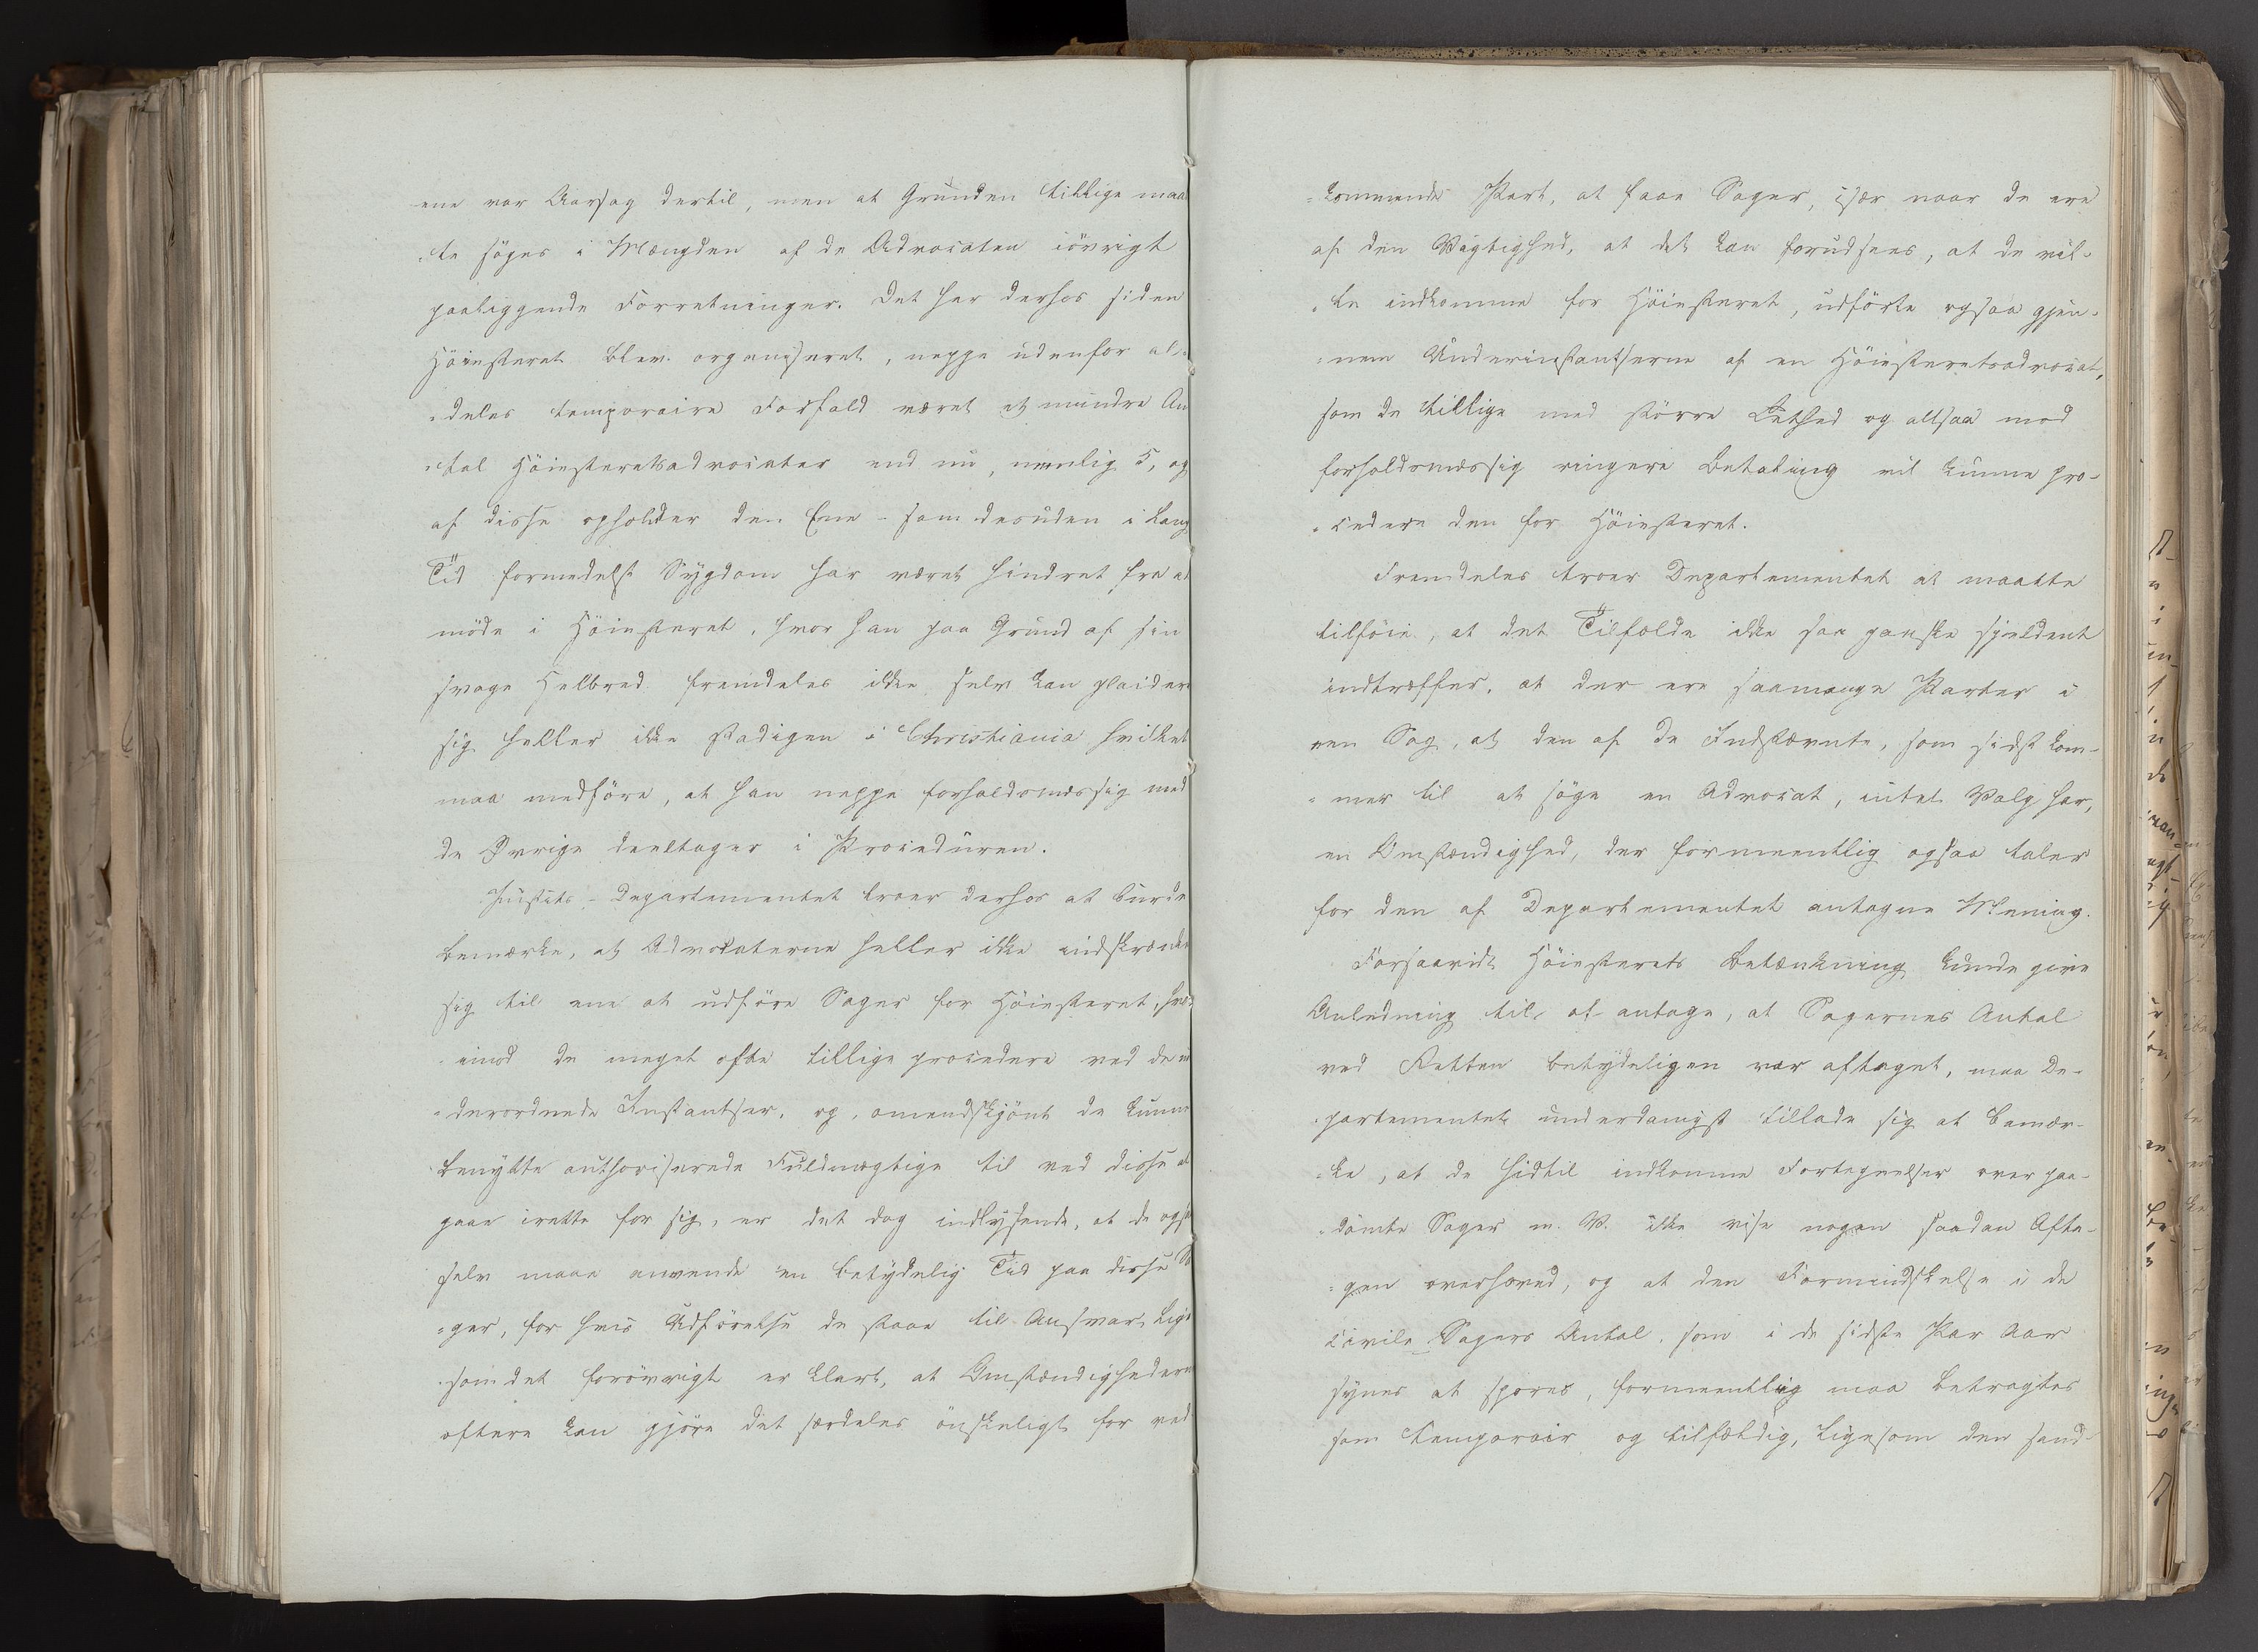 ene var Aarsag dertil, men at Grunden tillige maa
-te søges i Mængden af de Advocaten iövrigt
paaliggende Forretninger. Det har derhos siden
Höiesteret blev organiseret, neppe udenfor al-
-deles temporaire Forfald været et mindre An
-tal Höiesteretsadvocater end nu, nemlig 5, og
af disse opholder den Ene - som desuden i lang
Tid formedelst Sygdom har været hindret fra at
möde i Höiesteret, hvor han paa Grund af sin
svage Helbred fremdeles ikke selv kan plaidere
sig heller ikke stadigen i Christiania hvilket
maa medföre, at han neppe forholdsmæssig med
de Øvrige deeltager i Proceduren.
Justits-Departementet troer derhos at burde
bemærke, at Advokaterne heller ikke indskrænke
sig til ene at udföre Sager for Höiesteret, hvor
-imod de meget ofte tillige procedere ved de un
-derordnede Instantser, og, omendskjönt de kunne
benytte authoriserede Fuldmægtige til ved disse at
gaae irette for sig, er det dog indlysende, at de ogsaa
selv maae anvende en betydelig Tid paa disse Sa
-ger, for hvis Udförelse de staae til Ansvar, lige
-som det forövrigt er klart, at Omstændighederne
oftere kan gjöre det særdeles önskeligt for ved-
-kommende Part, at faae Sager, især naar de ere
af den Vigtighed, at det kan forudsees, at de vil-
-le indkomme for Höiesteret, udförte ogsaa gjen-
-nem Underinstantserne af en Höiesteretsadvocat,
som de tillige med större Lethed og altsaa mod
forholdsmæssig ringere Betaling vil kunne pro-
-cedere den for Höiesteret.
Fremdeles troer Departementet at maatte
tilföie, at det Tilfælde ikke saa ganske sjeldent
indtræffer, at der ere saamange Parter i
een Sag, at den af de Indstævnte, som sidst kom-
-mer til at söge en Advocat, intet Valg har,
en Omstændighed, der formeentlig ogsaa taler
for den af Departementet antagne Mening.
Forsaavidt Höiesterets Betænkning kunde give
Anledning til at antage, at Sagernes Antal
ved Retten betydeligen var aftaget, maa De-
-partementet underdanigst tillade sig at bemær-
-ke, at de hidtil indkomne Fortegnelser over paa-
-dömte Sager m. V. ikke vise nogen saadan Afta-
-gen overhoved, og at den Formindskelse i de
civile Sagers Antal, som i de sidste Par Aar
synes at spores, formeentlig maa betragtes
som temporair og tilfældig, ligesom den sand-